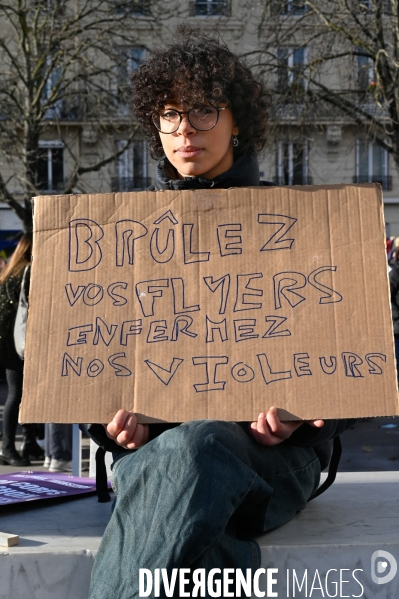 BRÛLEZ
VOS FLYERS
ENFERMEZ
NOS VIOLEURS
DIVERGENCE IMAGES D